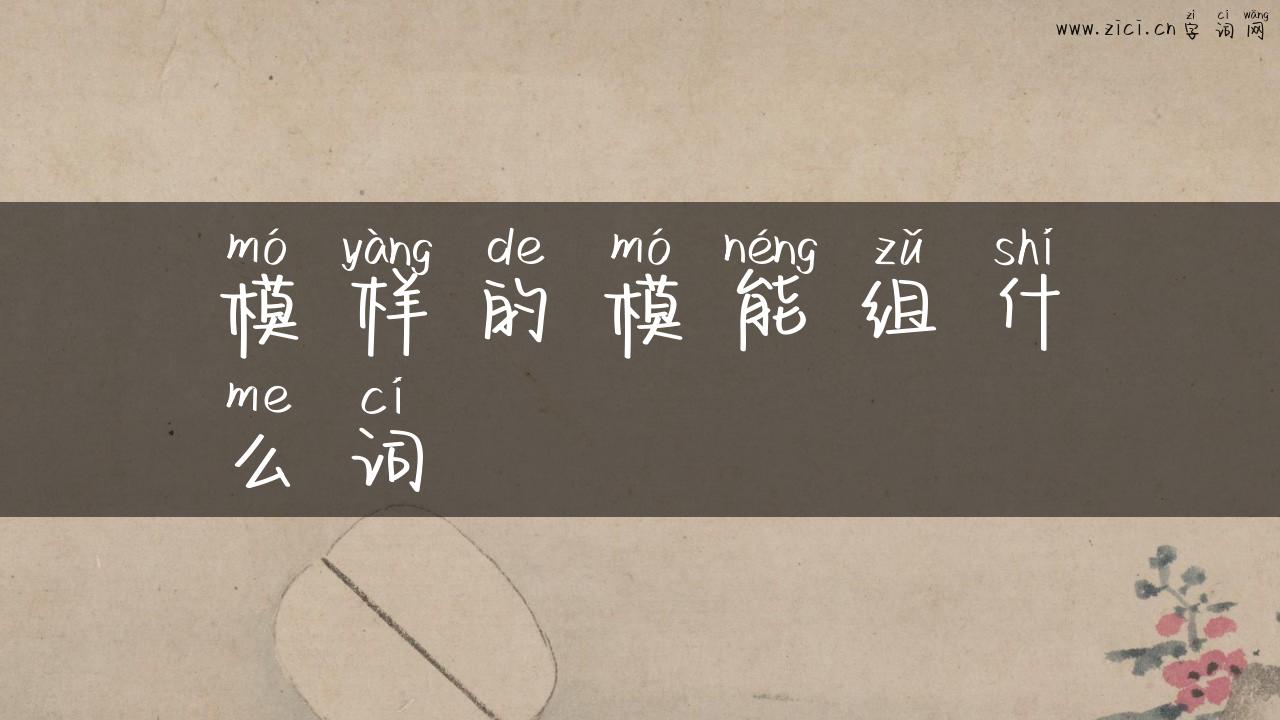 zì cí wǎng
www.zici.cn 字 词 网
mó yàng de mó néng zǔ shí
模 样 的 模 能 组 什
me cí
么 词